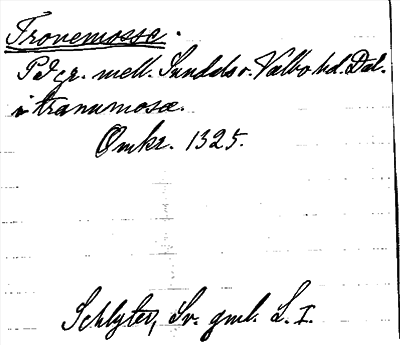 Tronemosse.
På gr. mell. Sundals o. Valbo hd. Dal.
i tranumosæ.
Omkr. 1325.
Schlyter, Sv. gml. L. I.